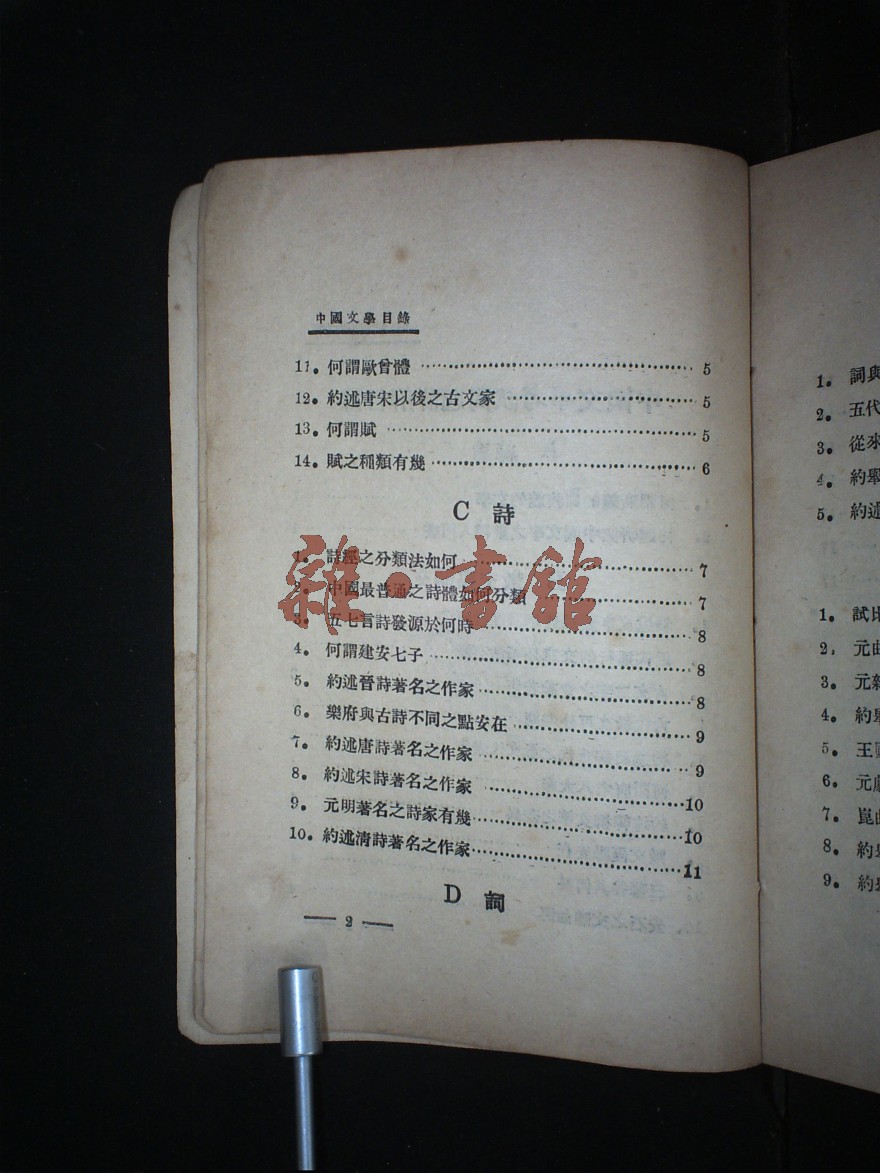 中國文學目錄
11. 何謂歐曾體 5
12. 約述唐宋以後之古文家 5
13. 何謂賦 5
14. 賦之種類有幾 6
C 詩
1. 詩經之分類法如何 7
2. 中國最普通之詩體如何分類 7
3. 五七言詩發源於何時 8
4. 何謂建安七子 8
5. 約述晉詩著名之作家 8
6. 樂府與古詩不同之點安在 9
7. 約述唐詩著名之作家 9
8. 約述宋詩著名之作家 10
9. 元明著名之詩家有幾 10
10. 約述清詩著名之作家 11
D 詞
2
雜·書館
1. 詞與
2. 五代
3. 從來
4. 約舉
5. 約述
1. 試比
2. 元曲
3. 元雜
4. 約舉
5. 王
6. 元
7. 崑曲
8. 約
9. 約